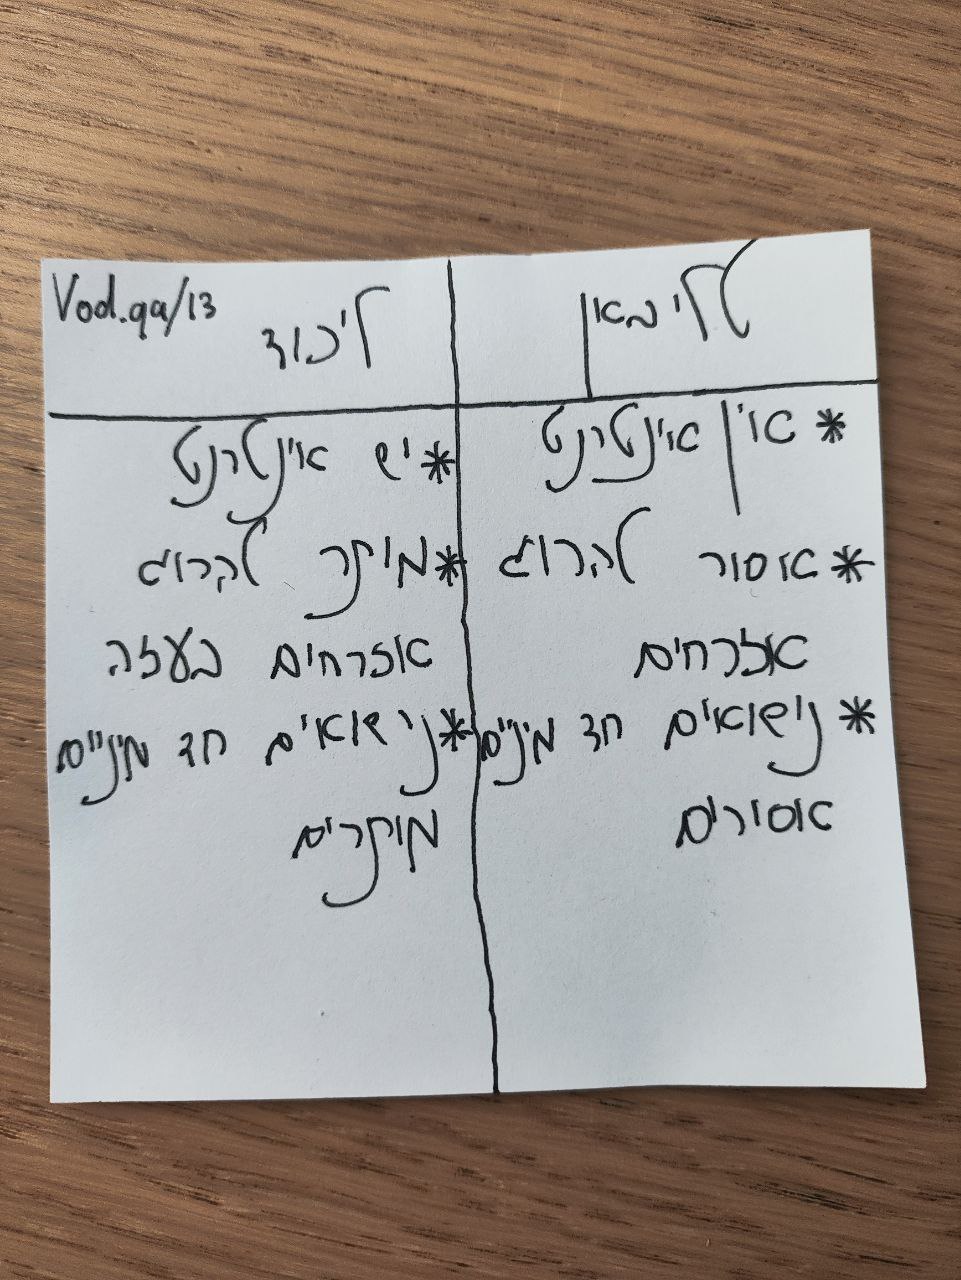 טליבאן
* אין אינטרנט
* אסור להרוג
אזרחים
* נישואים חד מיניים
אסורים
Vod.qa/13
ליכוד
* יש אינטרנט
* מותר להרוג
אזרחים בעזה
* נישואים חד מיניים
מותרים